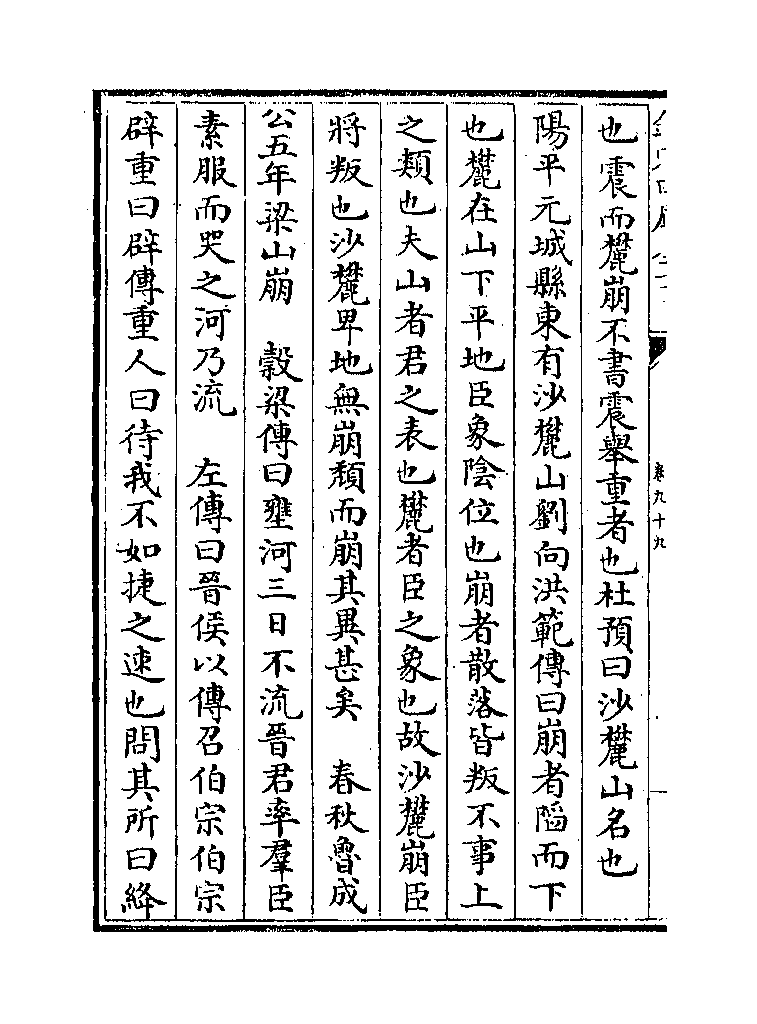 也震而麓崩不書震舉重者也杜預曰沙麓山名也
陽平元城縣東有沙麓山劉向洪範傳曰崩者陷而下
也麓在山下平地臣象陰位也崩者散落皆叛不事上
之類也夫山者君之表也麓者臣之象也故沙麓崩臣
將叛也沙麓卑地無崩頽而崩其異甚矣　春秋魯成
公五年梁山崩　穀梁傳曰壅河三日不流晉君率羣臣
素服而哭之河乃流　左傳曰晉侯以傳召伯宗伯宗
辟重曰辟傳重人曰待我不如捷之速也問其所曰絳
卷九十九